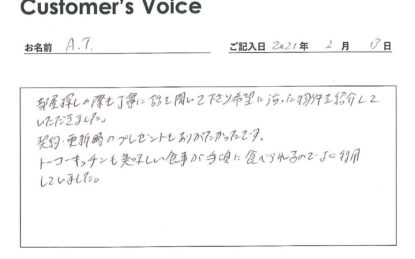 Customer's Voice
お名前 A.T. ご記入日 2021年 2月 17日
部屋探しの際も丁寧に話を聞いて下さり希望に沿った物件を紹介して
いただきました。
契約・更新時のプレゼントもありがたかったです。
トーコーキッチンも美味しい食事が手頃に食べられるのでよく利用
していました。